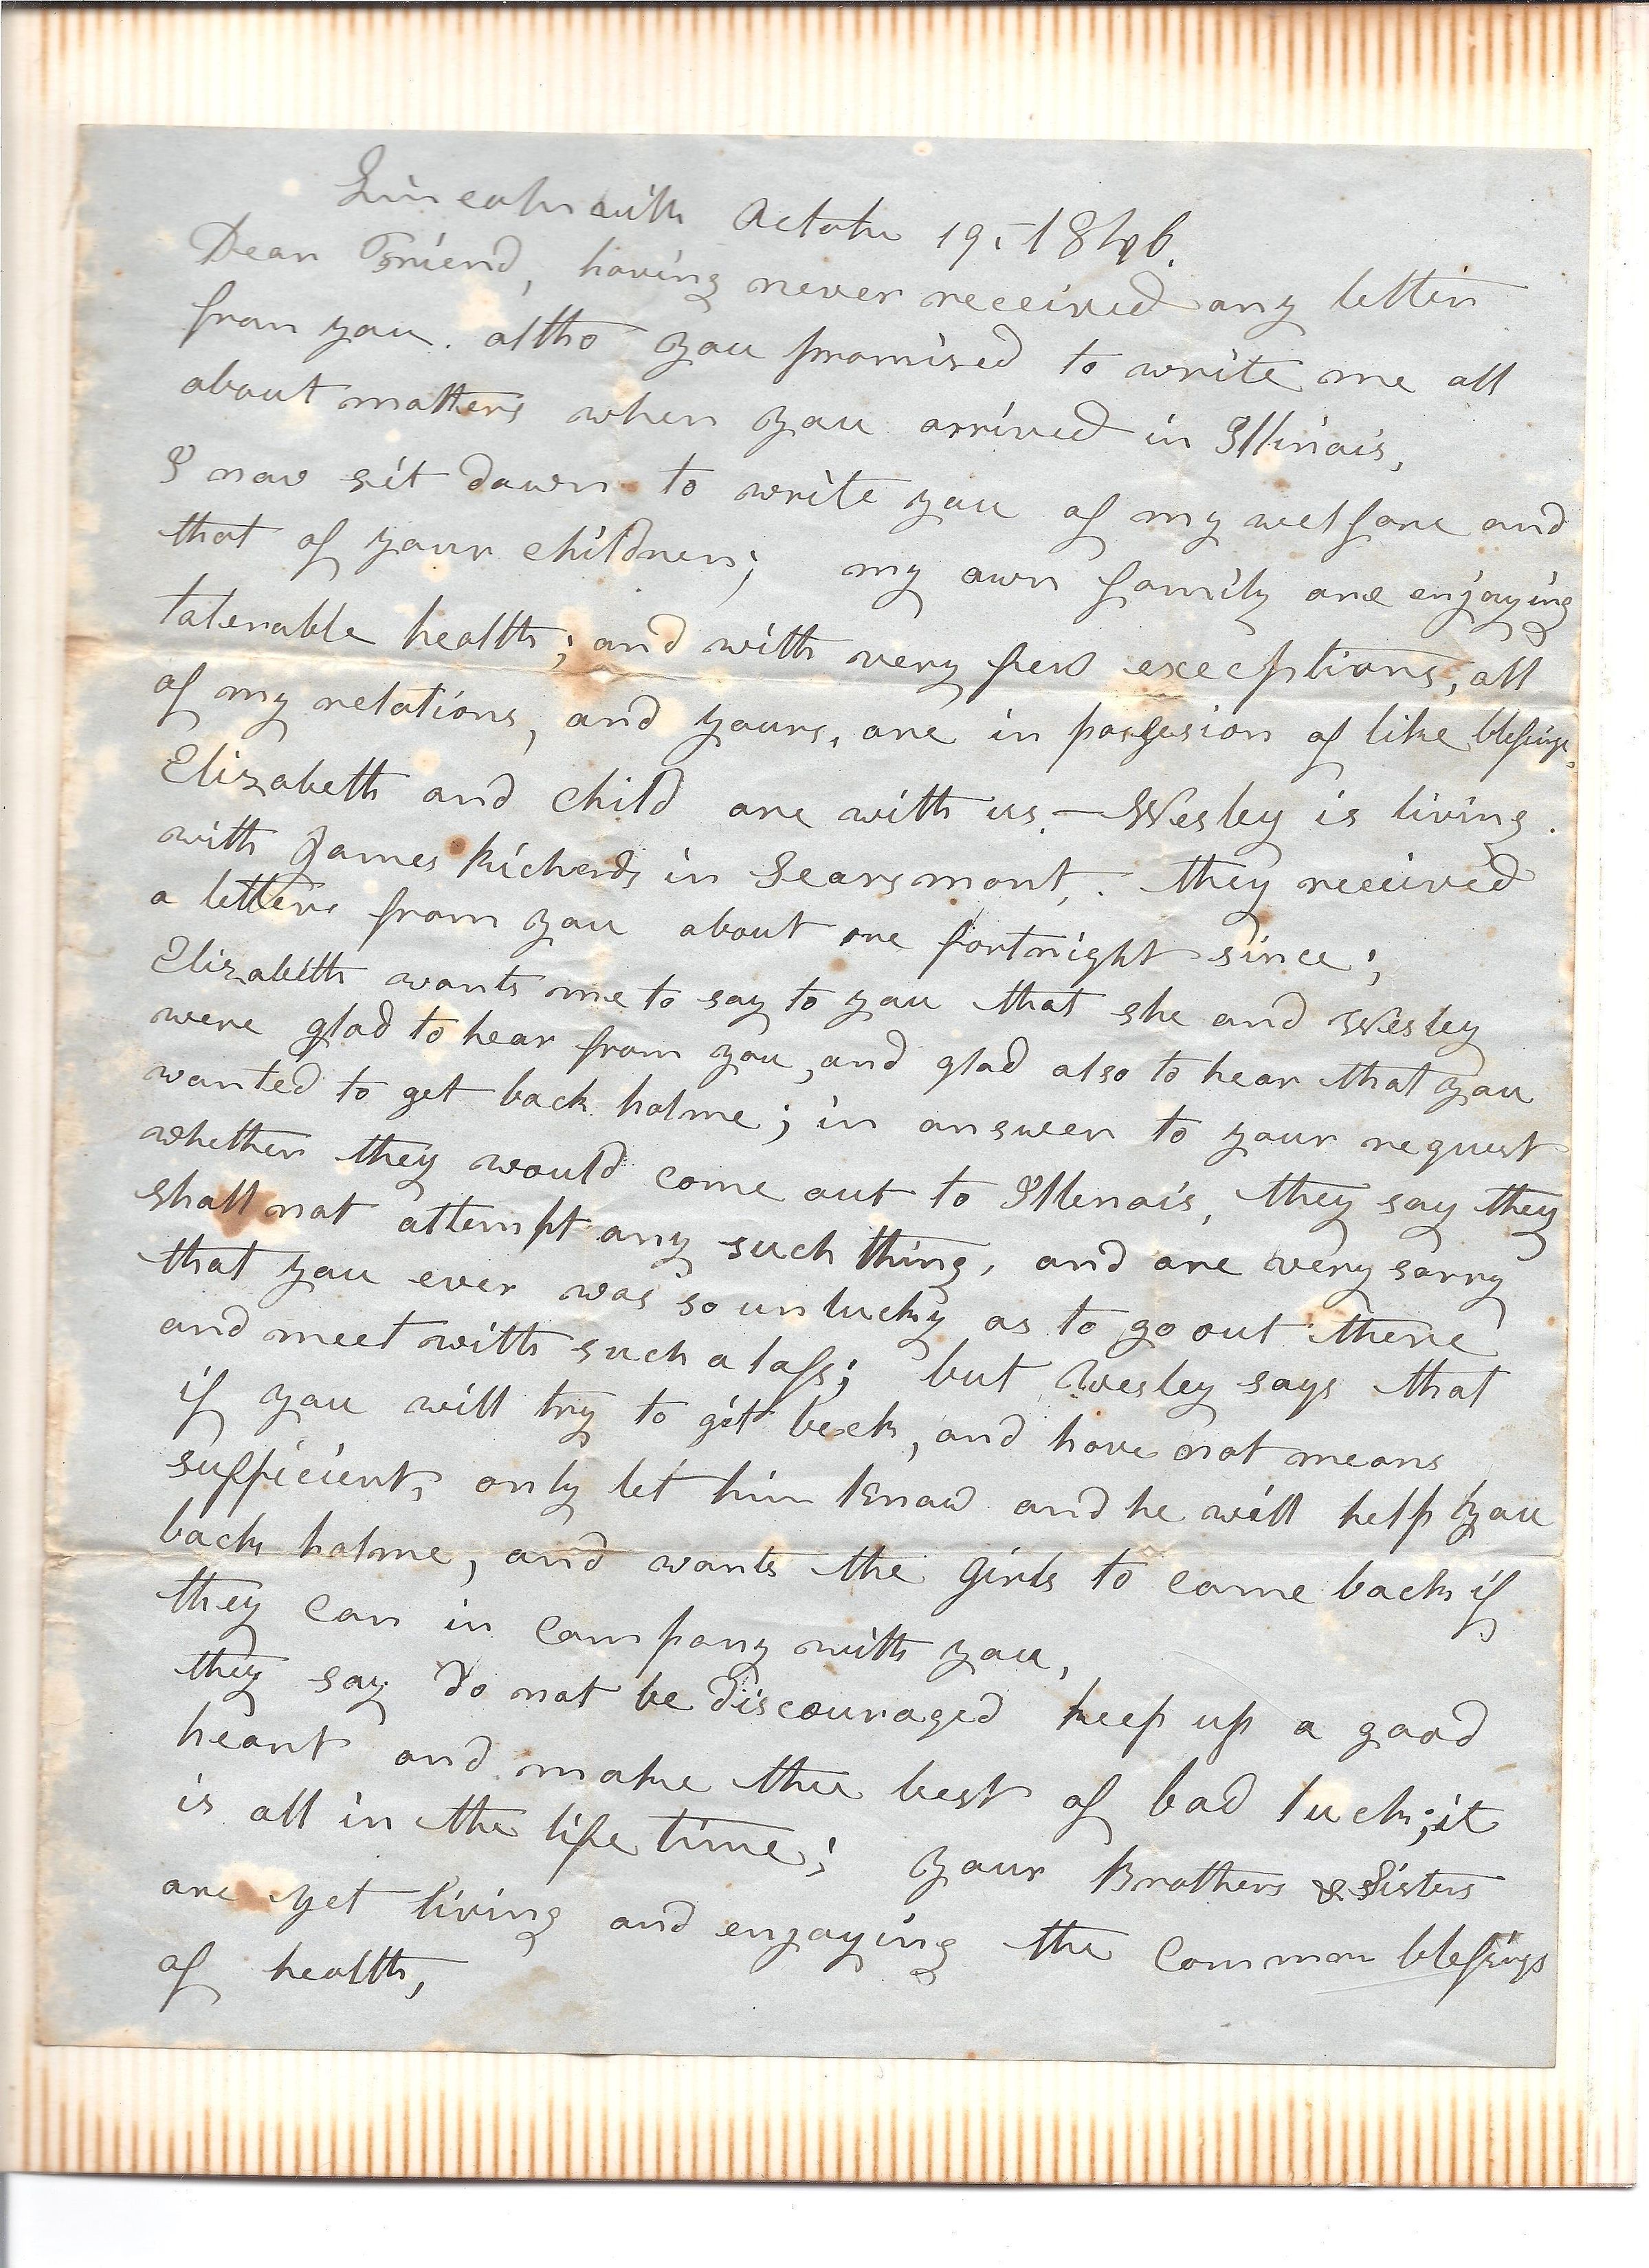 Lincolnvill October 19, 1846.
Dear Friend, having never received any letter
from you. altho you promised to write me all
about matters when you arrived in Illinois,
I now sit down to write you of my welfare and
that of your children; my own family are enjoying
tolerable health; and with very few exceptions, all
of my relations, and yours, are in possession of like blessings.
Elizabeth and child are with us. — Wesley is living
with James Richards in Searsmont, they received
a letter from you about one fortnight since;
Elizabeth wants me to say to you that she and Wesley
were glad to hear from you, and glad also to hear that you
wanted to get back holme; in answer to your request
whether they would come out to Illenois, they say they
shall not attempt any such thing, and are very sorry
that you ever was so unlucky as to go out there
and meet with such a loss; but Wesley says that
if you will try to git back, and have not means
sufficient, only let him know and he will help you
back holme, and wants the girls to come back if
they can in company with you,
they say do not be discouraged keep up a good
heart and make the best of bad luck; it
is all in the life time; your Brothers & Sisters
are yet living and enjoying the common blessings
of health,